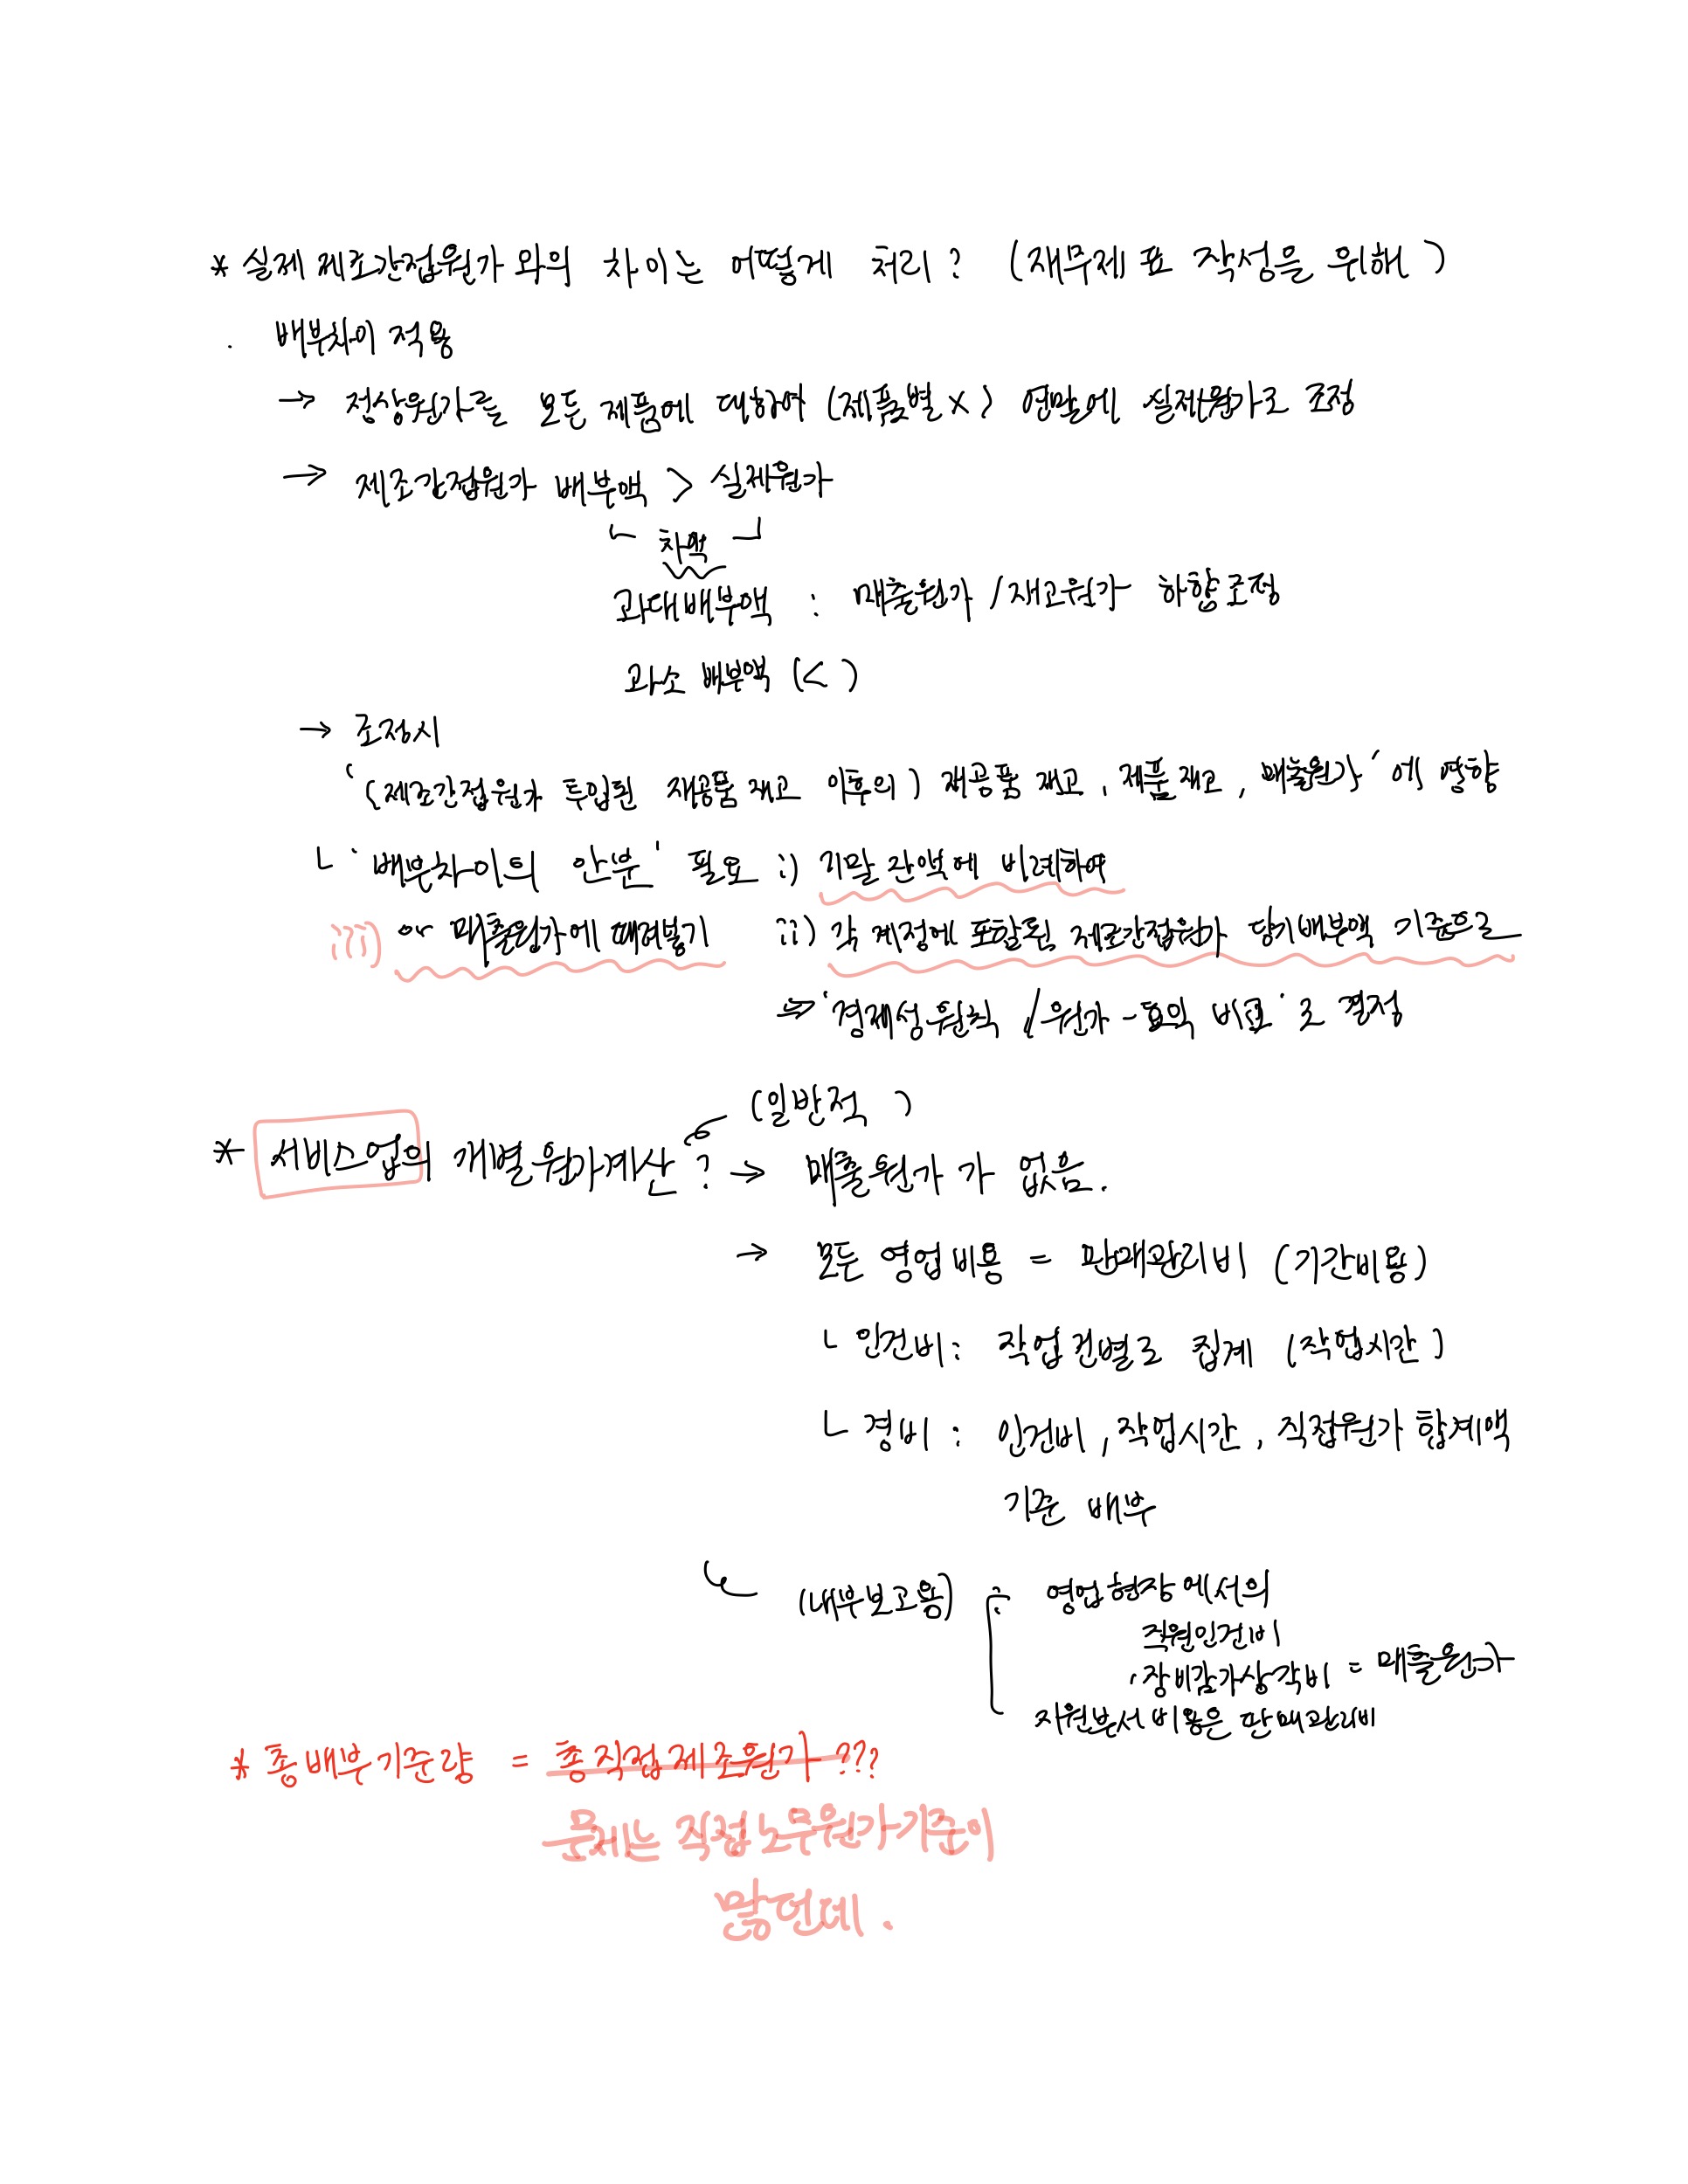 * 실제 제조간접원가 와의 차이는 어떻게 처리? (재무제표 작성을 위해)
· 배부차이 적용
→ 정상원가를 모든 제품에 대하여 (제품별 x) 연말에 실제원가로 조정
→ 제조간접원가 배부액 > 실제원가
차액
과대배부액 : 매출원가/재고원가 하향조정
과소 배부액 (<)
→ 조정시
'(제조간접원가 투입된 재공품 재고 이후의) 재공품 재고, 제품재고, 매출원가'에 영향
ㄴ '배부차이의 안분' 필요 i) 기말 잔액에 비례하여
iii) or 매출원가에 때려붙기 ii) 각 계정에 포함된 제조간접원가 당기배부액 기준으로
⇒ '경제성 원칙 / 원가-효익 비교'로 결정
(일반적)
* 서비스업의 개별원가계산? → 매출원가가 없음.
→ 모든 영업비용 = 판매관리비 (기간비용)
ㄴ 인건비: 작업건별로 집계 (작업시간)
ㄴ 경비 : 인건비, 작업시간, 직접원가 합계액
기준 배부
(내부보고용) : 영업현장에서의
직원인건비
·장비감가상각비 = 매출원가
지원부서 비용은 판매관리비
* 총배부기준량 = 총직접제조원가???
문제는 직접노무원가기준이
많던데.